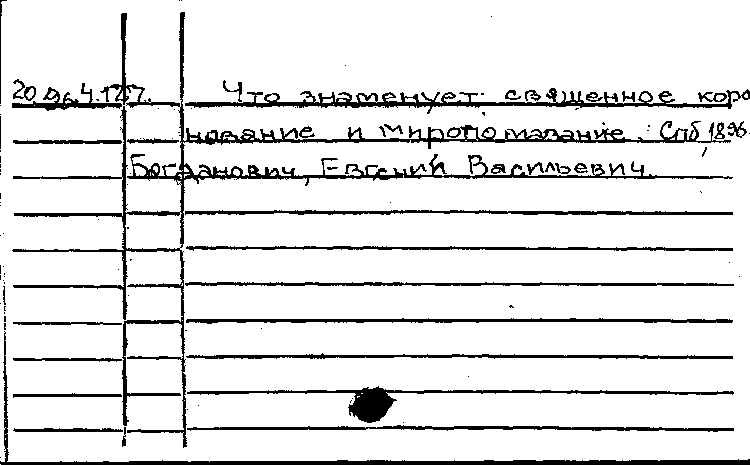 20.96.4.127. Что знаменует священное коро
нование и миропомазание. Спб, 1896.
Богданович, Евгений Васильевич.